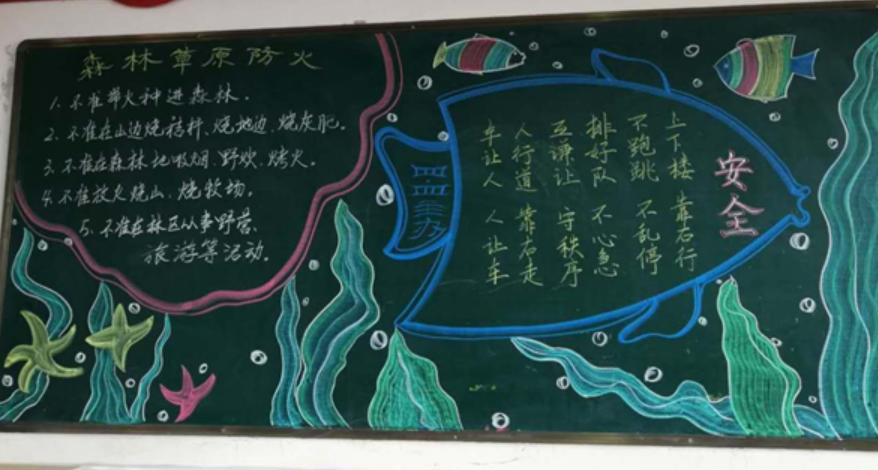 森林草原防火
1. 不准带火种进森林.
2. 不准在山边烧秸杆、烧地边、烧灰肥。
3. 不准在森林地吸烟、野炊、烤火。
4. 不准放火烧山、烧牧场。
5. 不准在林区从事野营、
旅游等活动。
安全
上下楼 靠右行
不跑跳 不乱停
排好队 不心急
互谦让 守秩序
人行道 靠右走
车让人 人让车
主办